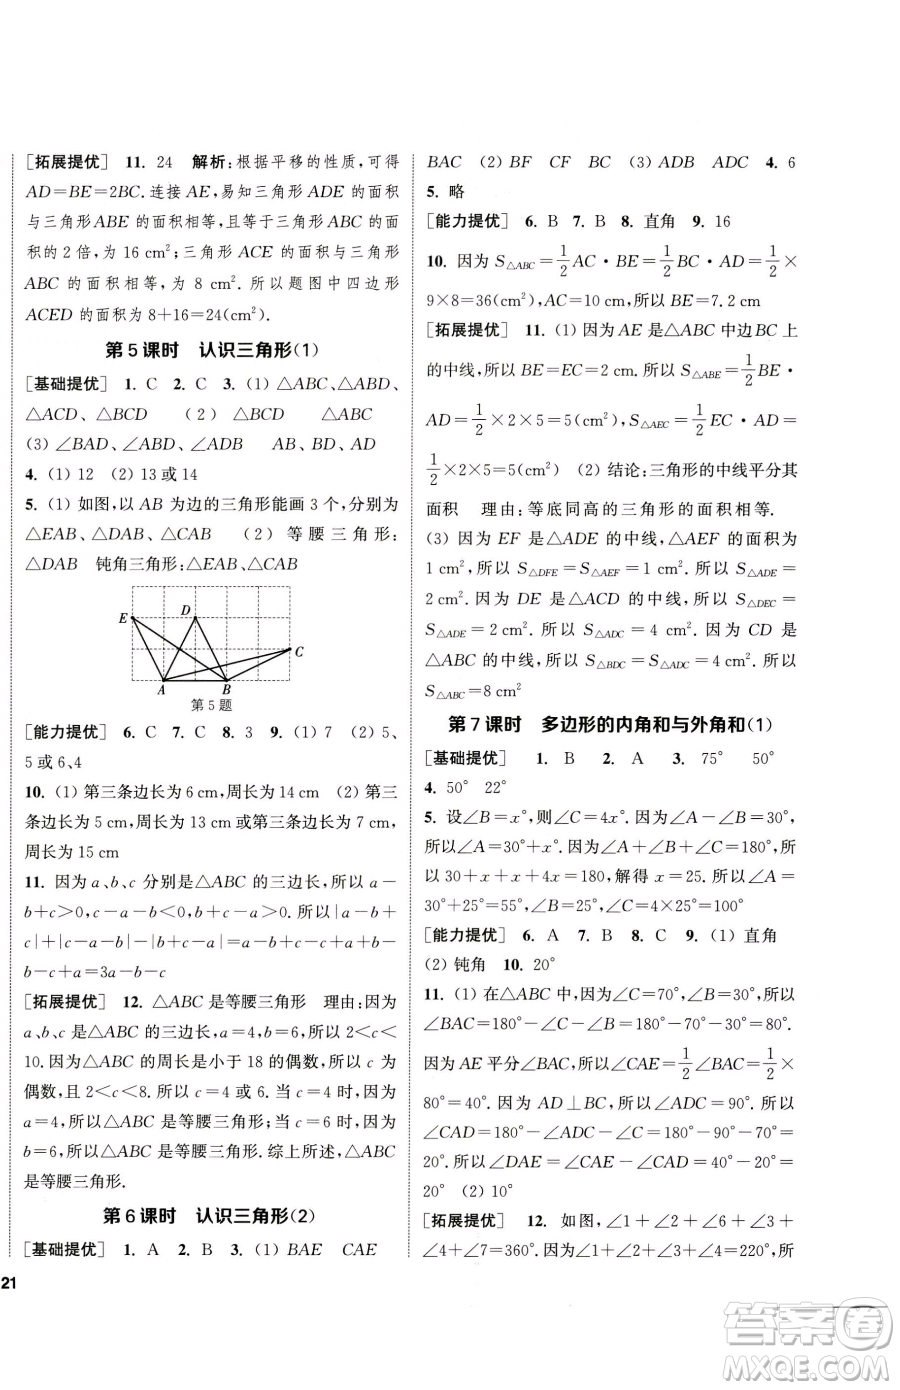 [拓展提优] 11. 24 解析:根据平移的性质,可得
AD=BE=2BC. 连接 AE,易知三角形 ADE 的面积
与三角形 ABE 的面积相等,且等于三角形 ABC 的面
积的 2 倍,为 16 cm²;三角形 ACE 的面积与三角形
ABC 的面积相等,为 8 cm². 所以题图中四边形
ACED 的面积为 8+16=24(cm²).
第 5 课时 认识三角形(1)
[基础提优] 1. C 2. C 3. (1) △ABC、△ABD、
△ACD、△BCD (2) △BCD △ABC
(3) ∠BAD、∠ABD、∠ADB AB、BD、AD
4. (1) 12 (2) 13 或 14
5. (1) 如图,以 AB 为边的三角形能画 3 个,分别为
△EAB、△DAB、△CAB (2) 等腰三角形:
△DAB 钝角三角形:△EAB、△CAB
E D C A B
第 5 题
[能力提优] 6. C 7. C 8. C 9. (1) 7 (2) 5、
5 或 6、4
10. (1) 第三条边长为 6 cm,周长为 14 cm (2) 第三
条边长为 5 cm,周长为 13 cm 或第三条边长为 7 cm,
周长为 15 cm
11. 因为 a、b、c 分别是△ABC 的三边长,所以 a−
b+c>0,c−a−b<0,a+b>0. 所以|a−b+
c|+|c−a−b|−|a+b|=a−b+c−c+a+b−
b−a=a−b
[拓展提优] 12. △ABC 是等腰三角形 理由:因为
a、b、c 是△ABC 的三边长,a=4,b=6,所以 2<c<
10. 因为△ABC 的周长是小于 18 的偶数,所以 c 为
偶数,且 2<c<8. 所以 c=4 或 6. 当 c=4 时,有
a=4,所以△ABC 是等腰三角形;当 c=6 时,有
b=6,所以△ABC 是等腰三角形. 综上所述,△ABC
是等腰三角形.
第 6 课时 认识三角形(2)
[基础提优] 1. A 2. B 3. (1) BAE CAE
21
BAC (2) BF CF BC (3) ADB ADC 4. 6
5. 略
[能力提优] 6. B 7. B 8. 直角 9. 16
10. 因为 S△ABC=1/2AC·BE=1/2BC·AD=1/2×
9×8=36(cm²),AC=10 cm,所以 BE=7.2 cm
[拓展提优] 11. (1) 因为 AE 是△ABC 中边 BC 上
的中线,所以 BE=EC=2 cm. 所以 S△ABE=1/2BE·
AD=1/2×2×5=5(cm²),S△AEC=1/2EC·AD=
1/2×2×5=5(cm²) (2) 结论:三角形的中线平分其
面积 理由:等底同高的三角形的面积相等.
(3) 因为 EF 是△ADE 的中线,△AEF 的面积为
1 cm²,所以 S△DFE=S△AEF=1 cm². 所以 S△ADE=
2 cm². 因为 DE 是△ACD 的中线,所以 S△DEC=
S△ADE=2 cm². 所以 S△ADC=4 cm². 因为 CD 是
△ABC 的中线,所以 S△BDC=S△ADC=4 cm². 所以
S△ABC=8 cm²
第 7 课时 多边形的内角和与外角和(1)
[基础提优] 1. B 2. A 3. 75° 50°
4. 50° 22°
5. 设∠B=x°,则∠C=4x°. 因为∠A−∠B=30°,
所以∠A=30°+x°. 因为∠A+∠B+∠C=180°,所
以 30+x+x+4x=180,解得 x=25. 所以∠A=
30°+25°=55°,∠B=25°,∠C=4×25°=100°
[能力提优] 6. A 7. B 8. C 9. (1) 直角
(2) 钝角 10. 20°
11. (1) 在△ABC 中,因为∠C=70°,∠B=30°,所以
∠BAC=180°−∠B−∠C=180°−70°−30°=80°.
因为 AE 平分∠BAC,所以∠CAE=1/2∠BAC=1/2×
80°=40°. 因为 AD⊥BC,所以∠ADC=90°. 所以
∠CAD=180°−∠ADC−∠C=180°−90°−70°=
20°. 所以∠DAE=∠CAE−∠CAD=40°−20°=
20° (2) 10°
[拓展提优] 12. 如图,∠1+∠2+∠6+∠3+
∠4+∠7=360°. 因为∠1+∠2+∠3+∠4=220°,所
答案圈
MXQE.COM